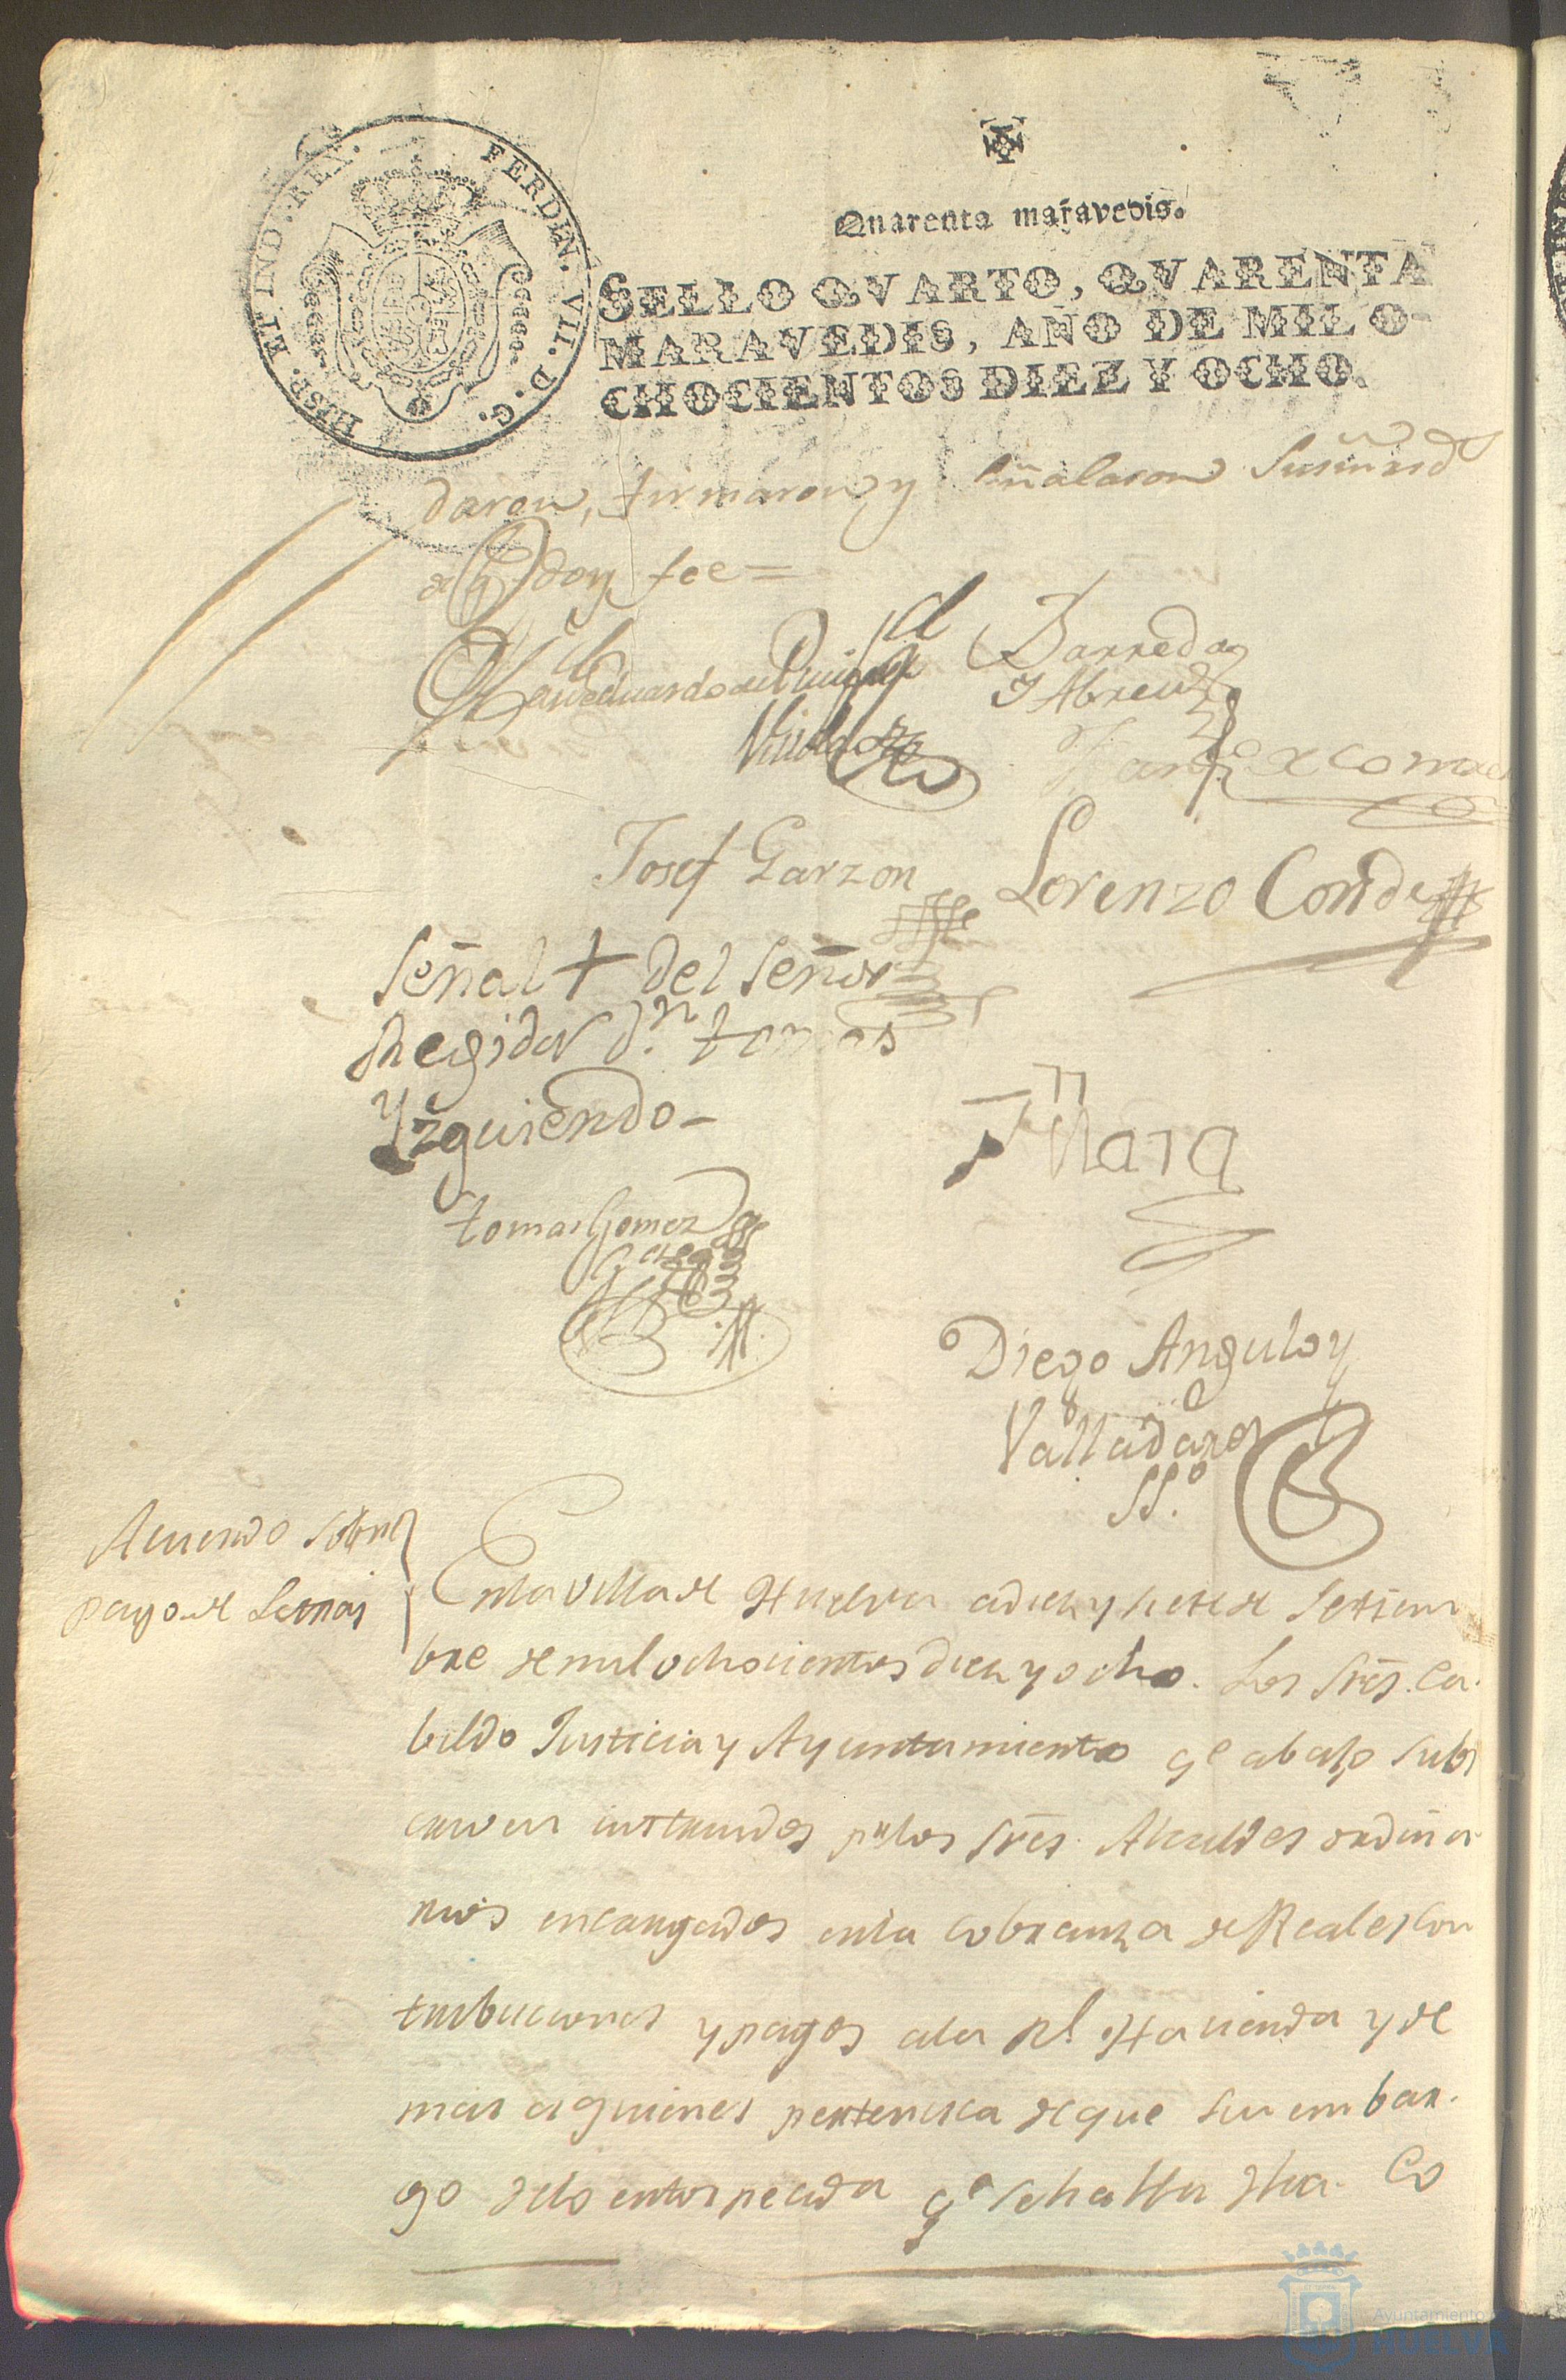 HISP. ET IND. REX. FERDIN. VII. D. G.
Quarenta maravedis.
SELLO QVARTO, QVARENTA
MARAVEDIS, AÑO DE MIL O-
CHOCIENTOS DIEZ Y OCHO.
daron, firmaron, y señalaron
doy fee =
Barreda
Y Abreu
Josef Garzon
Lorenzo Conde
Señal + del Señor
Regidor Dn. tomas
Yzquierdo -
Mara
tomas Gomez
Diego Angulo y
Valladares
SS.º
Acuerdo sobre
pago de Lanas
En la villa de Huelva a diez y siete de Setiem
bre de mil ochocientos diez y ocho. Los Sres. Ca-
bildo Justicia y Ayuntamiento qe abajo subs
criven instruidos pr los Sres. Alcaldes ordina-
rios encargados en la cobranza de Reales con
tribuciones y pagos a la Rl. Hacienda y de
mas a quienes pertenezca de que sin embar-
go de lo entorpecida qe se halla dha. Co
Ayuntamiento
HUELVA